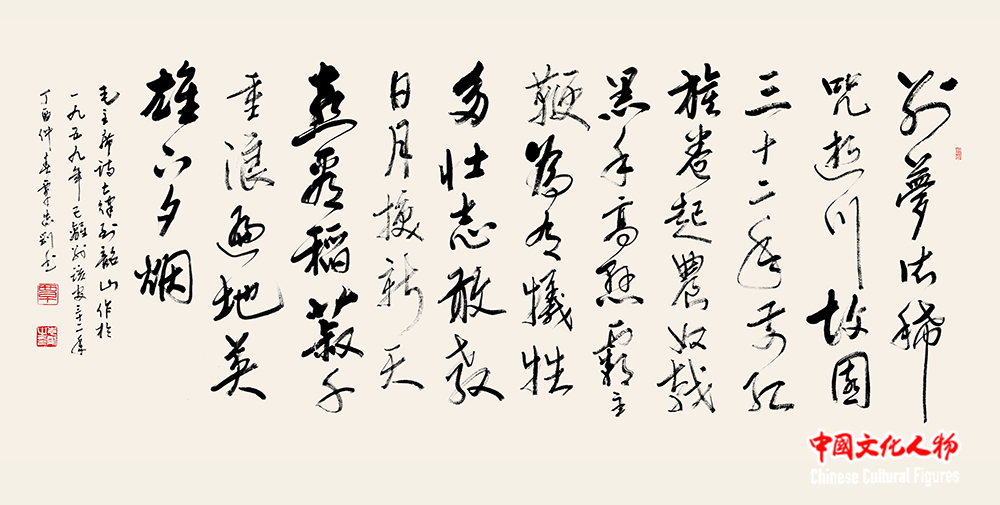 别夢依稀
咒逝川故園
三十二年前红
旗卷起農奴戟
黑手高懸霸主
鞭為有犧牲
多壮志敢教
日月換新天
喜看稻菽千
重浪遍地英
雄下夕烟
毛主席詩七律到韶山作於
一九五九年已離别三十二年
丁酉仲春覃志刚书
中國文化人物
Chinese Cultural Figures